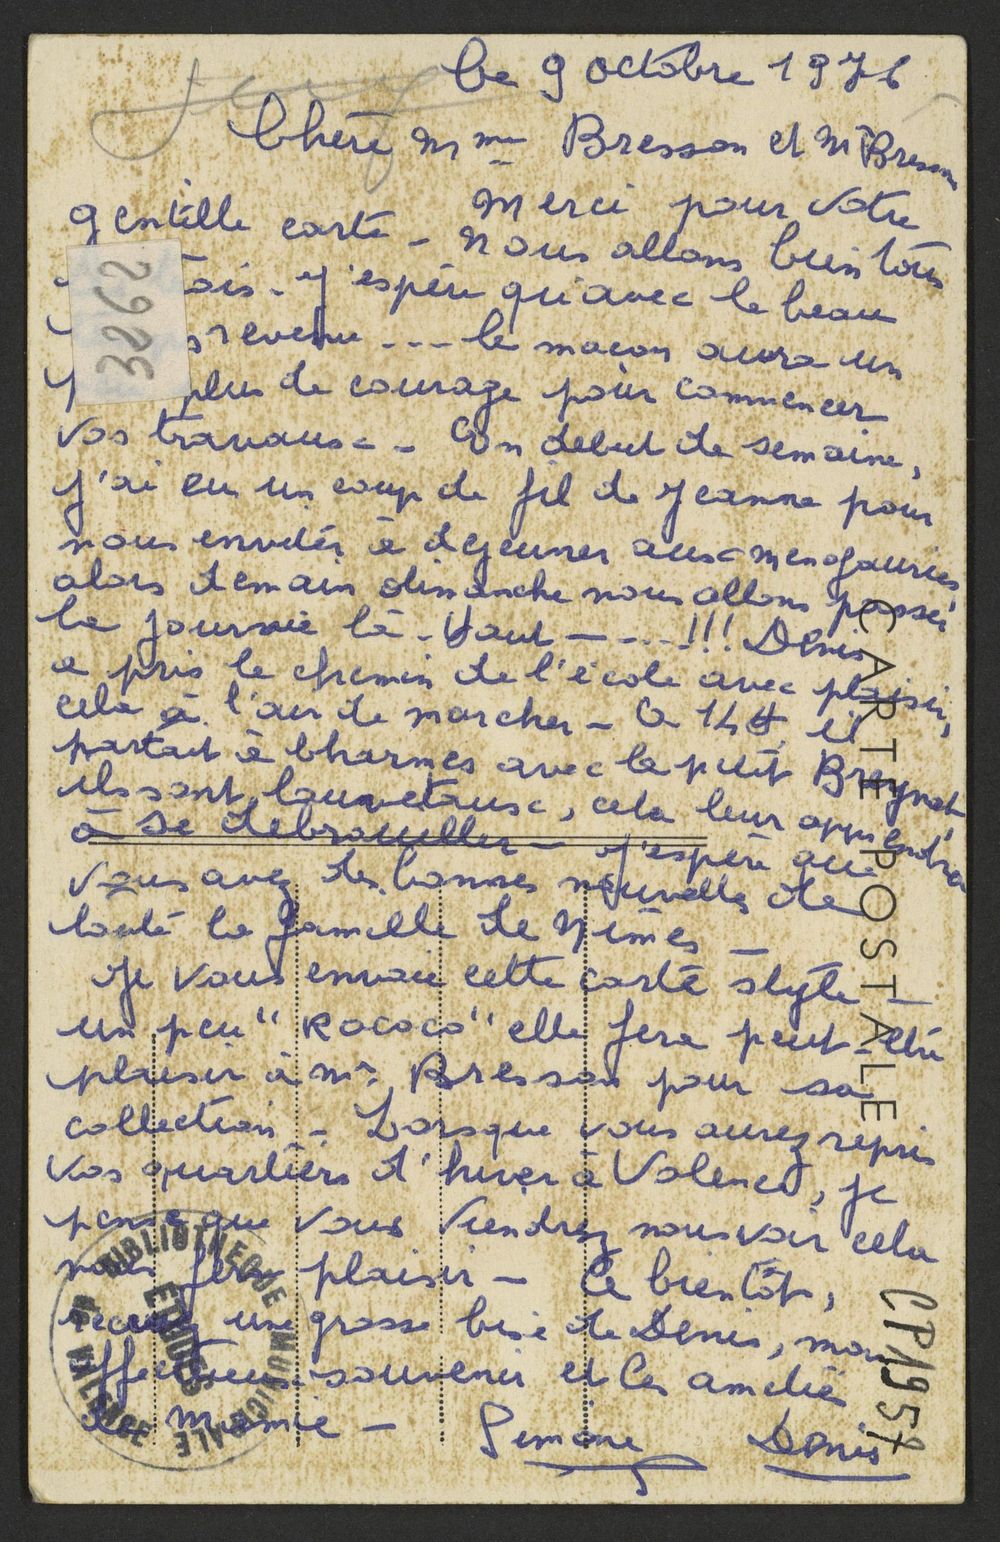 Le 9 octobre 1976
Chère Mme Bresson et Mr Bresson
Merci pour votre
gentille carte - Nous allons bien tous
ois - J'espère qu'avec le beau
s revenu --- le maçon aura un
plus de courage pour commencer
vos travaux - En debut de semaine,
j'ai eu un coup de fil de Jeanne pour
nous inviter à dejeuner aux menafauries
alors demain dimanche nous allons passer
la journée là-haut ----!!! Denis
a pris le chemin de l'école avec plaisir,
cela à l'air de marcher - A 14H, il
partait à Charmes avec le petit Breynat
ils sont louvetaux, cela leur apprendra
à se debrouiller - J'espère que
vous avez des bonnes nouvelles de
toute la famille de Nîmes -
Je vous envoie cette carte style
un peu "Rococo" elle fera peut-être
plaisir à Mr Bresson pour sa
collection - Lorsque vous aurez repris
vos quartiers d'hiver à Valence, je
pense que vous viendrez nous voir cela
nous fera plaisir - A bientôt,
recevez une grosse bise de Denis, mon
affectueux souvenir et les amitiés
de Mamie - Simone Denis
3262
CARTE POSTALE
CP1957
BIBLIOTHEQUE MUNICIPALE
ETUDES
DE VALENCE